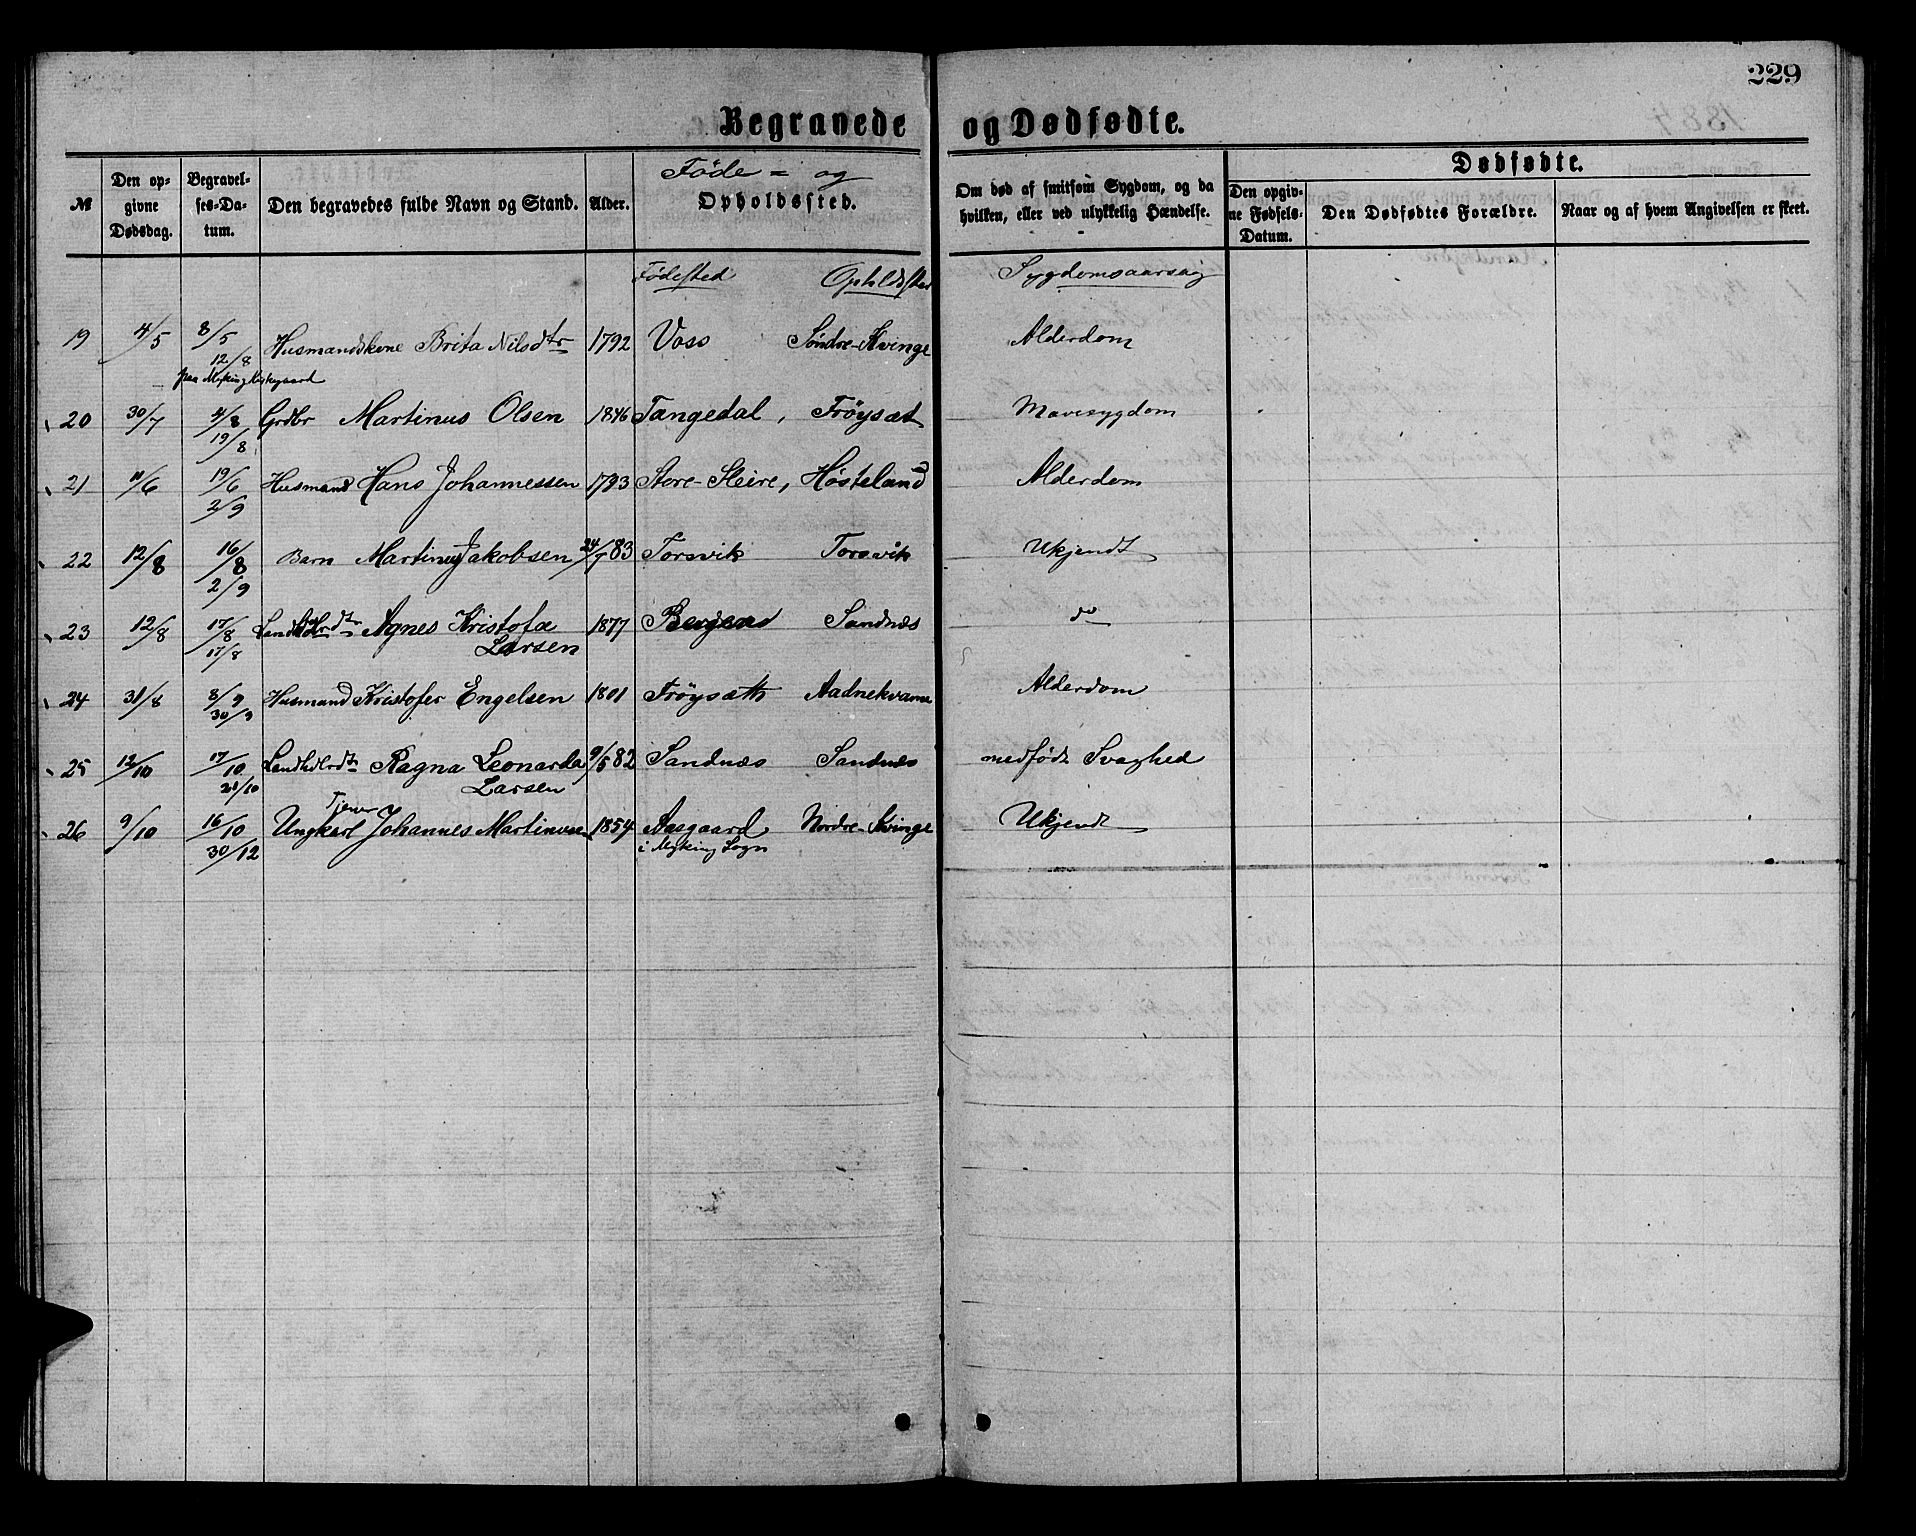 229
Begravede og Dødfødte.
№ | Den opgivne Dødsdag. | Begravelses-Datum. | Den begravedes fulde Navn og Stand. | Alder. | Føde= og Opholdssted. | Om død af smitsom Sygdom, og da hvilken, eller ved ulykkelig Hændelse. | Dødfødte. Den opgivne Fødsels-Datum. | Den Dødfødtes Forældre. | Naar og af hvem Angivelsen er skeet.
Fødested Opholdsted Sygdomsaarsag
19 4/5 8/5 Husmandskone Brita Nilsdtr 1792 Voss Søndre-Kvinge Alderdom
12/8
paa Myking Kirkegaard
20 30/7 4/8 Grdbr Martinus Olsen 1846 Tangedal, Frøysæt Mavesygdom
19/8
21 11/6 19/6 Husmand Hans Johannessen 1793 Store-Sleire, Høsteland Alderdom
2/9
22 12/8 16/8 Barn Martinus Jakobsen 24/7 83 Torsvik Torsvik Ukjendt
2/9
23 12/8 17/8 Agnes Kristofa 1877 Bergen Sandnæs do
17/8 Larsen
24 31/8 8/9 Husmand Kristofer Engelsen 1801 Frøysætt Aadnekvame Alderdom
30/9
25 12/10 17/10 Landhdlrdtr Ragna Leonarda 9/5 82 Sandnæs Sandnæs medfødt Svaghed
21/10 Larsen
Tjener
26 9/10 16/10 Ungkarl Johannes Martinus 1854 Aasgaard Nordre-Kvinge Ukjendt
30/12 i Myking Sogn